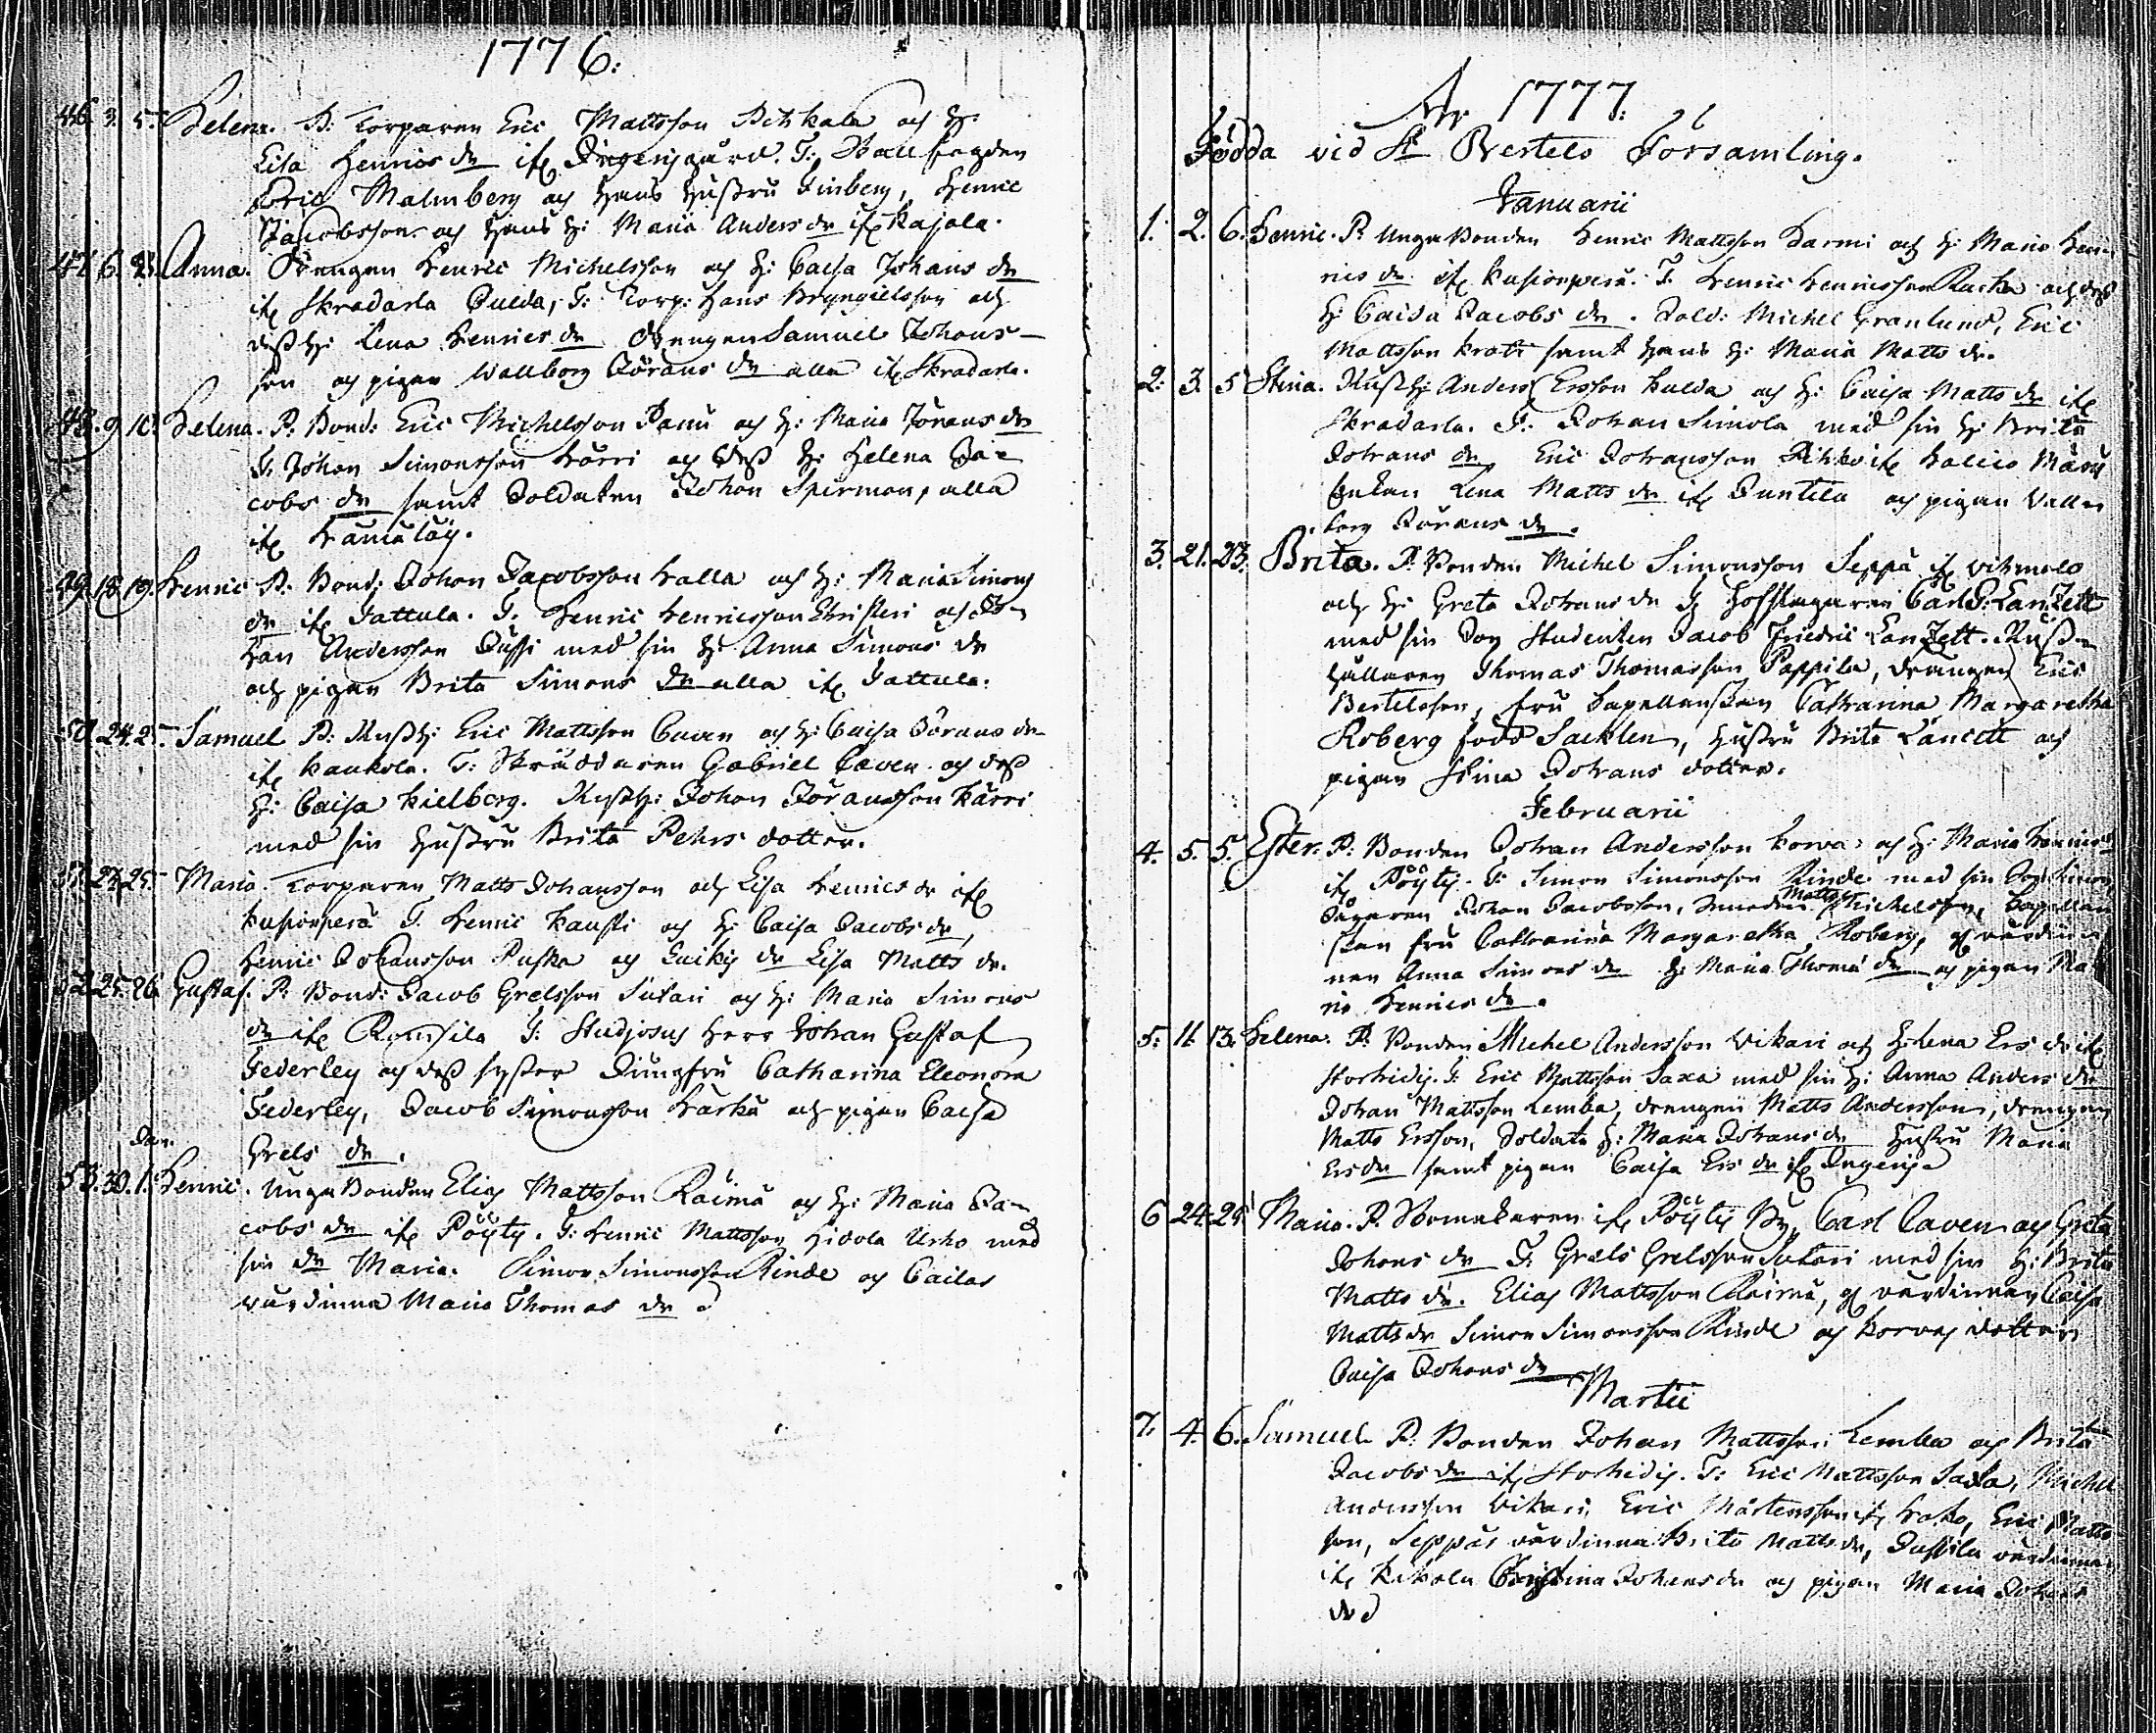 1776:
46. 3. 5. Helena. P: Torparen Eric Mattsson Pitkala och H:
Lisa Henrics dr ifr Ingenjsgård. T: Befallfogden
Eric Malmberg och hans hustru Finberg, Henric
Jacobsson och hans H: Maria Anders dr ifr Kajala.
47. 6. Anna. Drengen Henric Michelsson och H: Caisa Johans dr
ifr Skradarla T: Torp: Hans Bryngielsson och
dess H: Lena Henrics dr Drengen Samuel Johans-
son och pigan Wallborg Görans dr alla ifr Skradarla.
48. 9. 10. Helena. P: Bond: Eric Michelsson Panu och H: Maria Görans dr
T. Johan Simonsson Kärri och dess H: Helena Ja-
cobs dr samt Soldaten Johan Spirman, alla
ifr
49. 18. 19. Henric P: Bond: Johan Jacobsson Kalla och H: Maria Simons
dr ifr Tattula. T. Henric Henricsson Christeri och Jo-
han Andersson Jussi med sin H: Anna Simons dr
och pigan Brita Simons dr alla ifr Tattula.
50. 24. 25. Samuel P: Rusth: Eric Mattsson Caven och H: Caisa Görans dr
ifr Kaukola. T: Skräddaren Gabriel Caven och dess
H: Caisa Kielberg. Rusth: Johan Göransson Kärri
med sin hustru Brita Pehrs dotter.
51. 23. 25. Maria. Torparen Matts Johansson och Lisa Henrics dr ifr
Kusionperä T. Henric Kausti och H: Caisa Jacobs dr,
Henric Johansson Puska och dr Lisa Matts dr.
52. 25. 26. Gustaf. P: Bond: Jacob Grelsson Sutari och H: Maria Simons
dr ifr T: Studiosus Herr Johan Gustaf
Federley och dess syster Jungfru Catharina Eleonora
Federley, Jacob Simonsson Karhu och pigan Caisa
Grels dr.
Jan.
53. 30. 1. Henric. Unga Bonden Elias Mattsson Raimä och H: Maria Ja-
cobs dr ifr Pöyty. T: Henric Mattsson Urho med
sin dr Maria. Simon Simonsson Rinde och Cailas
värdinna Maria Thomas dr
Ar 1777.
Födda vid St Bertels Församling.
Januarii
1. 2. 6. Henric. P. Unga Bonden Henric Mattsson Harmi och H: Maria Hen-
rics dr ifr Kusionperä. T. Henric Henricsson och dess
H: Caisa Jacobs dr. Sold: Michel Granlund, Eric
Mattsson samt hans H: Maria Matts dr.
2. 3. 5 Stina. Rusth: Anders Ersson Kulda och H: Caisa Matts dr ifr
Skradarla. T. Johan Simola med sin H: Brita
Johans dr Eric Johansson ifr
Enkan Lena Matts dr ifr Juntila och pigan Wall-
borg Görans dr.
3. 21. 23. Brita. P. Bonden Michel Simonsson Seppä ifr
och H: Greta Johans dr T. Hofslagaren Carl G: Lanzett
med sin Son Studenten Jacob Friedric Lanzett. Rust-
hållaren Thomas Thomasson Pappila, drängen Eric
Bertelsson, fru Capellanskan Catharina Margaretha
Roberg född Sacklen, hustru Brita Lancett och
pigan Stina Johans dotter.
Februarii
4. 5. 5. Ester. P: Bonden Johan Andersson Korva och H: Maria Henrics
ifr Pöytij. T: Simon Simonsson Rinde med sin Son Simon,
Johan Jacobsson, Smeden Matts Michelsson, Capellan-
skan fru Catharina Margaretha Roberg, värdin-
nan Anna Simons dr H: Maria Thomæ dr och pigan Ma-
ria Henrics dr.
5. 11. 13. Helena. P. Bonden Michel Andersson Vikari och H: Lena Ers dr ifr
Storhidij. T: Eric Mattsson Saxa med sin H: Anna Anders dr
Johan Mattsson Lemba, drengen Matts Andersson, drengen
Matts Ersson, Soldats H: Maria Johans dr hustru Maria
Ers dr samt pigan Caisa Ers dr ifr Ingenis
6 24. 25. Maria. P. Skomakaren ifr Pöytij By, Carl Caven och Greta
Johans dr T. Grels Grelsson Sutari med sin H: Brita
Matts dr. Elias Mattsson Raimä, värdinnan Caisa
Matts dr Simon Simonsson Rinde och Korvas dotter
Caisa Johans dr
Martii
7. 4. 6. Samuel P: Bonden Johan Mattsson Lemba och Brita
Jacobs dr ifr Storhidij. T: Eric Mattsson Saxa, Michel
Andersson Vikari, Eric Mårtensson ifr Eric Matts-
son, Seppäs värdinna Brita Matts dr, Jussila värdinna
ifr Christina Johans dr och pigan Maria Johans
dr